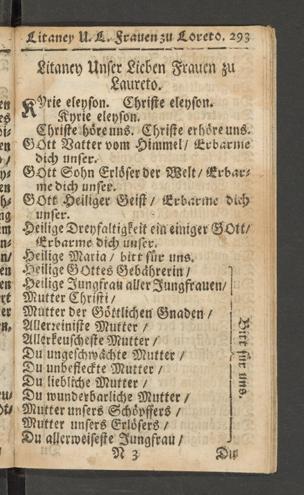 Litaney U. L. Frauen zu Loreto. 293
Litaney Unser Lieben Frauen zu
Laureto.
KYrie eleyson. Christe eleyson.
Kyrie eleyson.
Christe höre uns. Christe erhöre uns.
GOtt Vatter vom Himmel/ Erbarme
dich unser.
GOtt Sohn Erlöser der Welt/ Erbar-
me dich unser.
GOtt Heiliger Geist/ Erbarme dich
unser.
Heilige Dreyfaltigkeit ein einiger GOtt/
Erbarme dich unser.
Heilige Maria/ bitt für uns.
Heilige GOttes Gebährerin/
Heilige Jungfrau aller Jungfrauen/
Mutter Christi/
Mutter der Göttlichen Gnaden/
Allerreiniste Mutter/
Allerkeuscheste Mutter/
Du ungeschwächte Mutter/
Du unbefleckte Mutter/
Du liebliche Mutter/
Du wunderbarliche Mutter/
Mutter unsers Schöpffers/
Mutter unsers Erlösers/
Du allerweiseste Jungfrau/
Bitt für uns.
N 3 Du